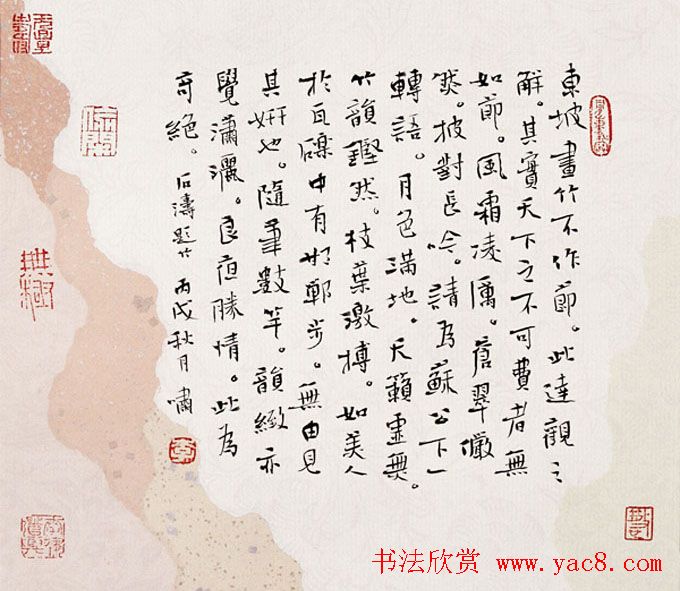 東坡畫竹不作節。此達觀之
解。其實天下之不可費者無
如節。風霜凌厲。蒼翠儼
然。披對長吟。請為蘇公下一
轉語。月色滿地。天籟虛無。
竹韻鏗然。枝葉激搏。如美人
於瓦礫中有邯鄲步。無由見
其妍也。隨筆數竿。韻緻亦
覺瀟灑。良宵勝情。此為
奇絕。石濤題竹 丙戌秋月 嘯
無極
书法欣赏 www.yac8.com